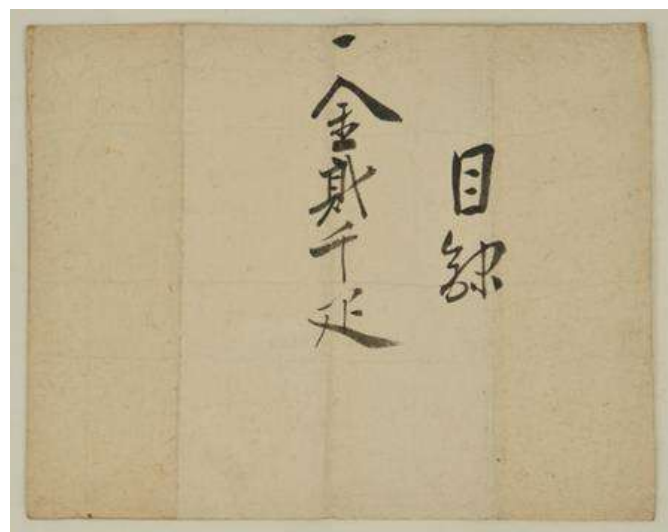 目録
一金貳千疋